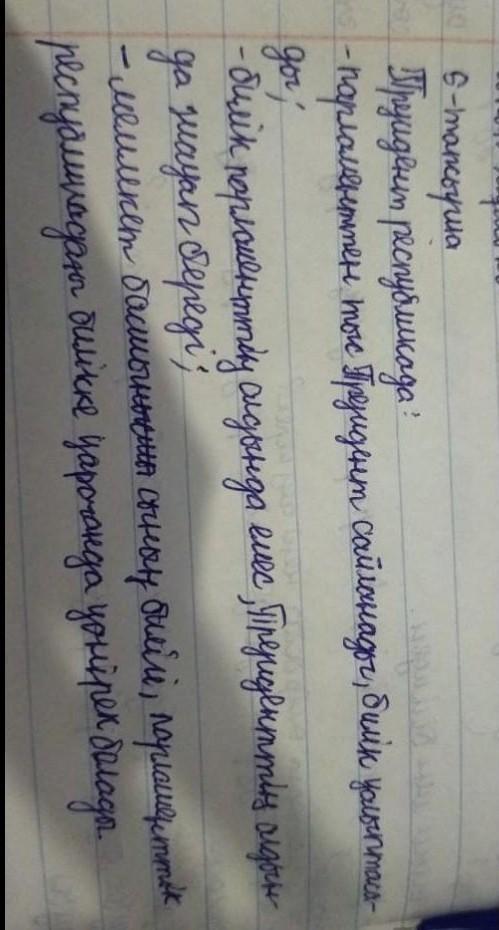 6-тапсырма
Президент республикада:
- парламенттен тыс Президент сайланады, билік қалыптаса-
ды;
- билік парламенттің алдында емес, Президенттің алдын-
да жауап береді;
- мемлекет басшысының билігі, парламенттік
республикадағы билікке қарағанда кеңірек болады.